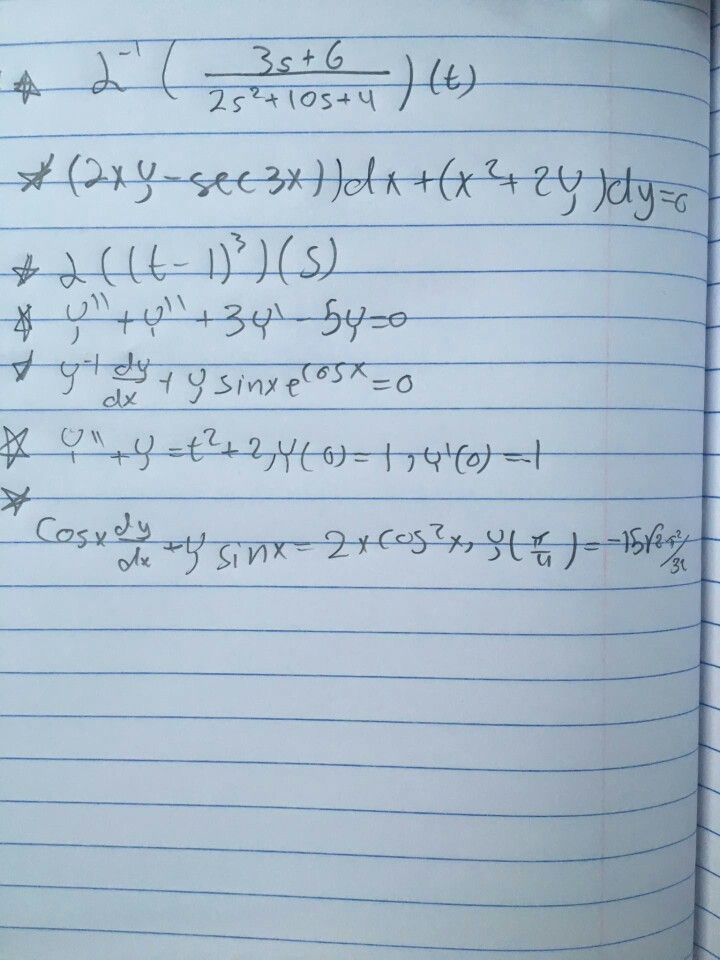 ℒ⁻¹ ( (3s+6)/(2s²+10s+4) ) (t)
(2xy - sec 3x))dx + (x² + 2y)dy = 0
ℒ((t-1)³)(s)
y'' + y'' + 3y' - 5y = 0
y⁻¹ dy/dx + y sinx e^cosx = 0
y'' + y = t² + 2, y(0) = 1, y'(0) = -1
cosx dy/dx + y sinx = 2x cos²x, y(π/4) =